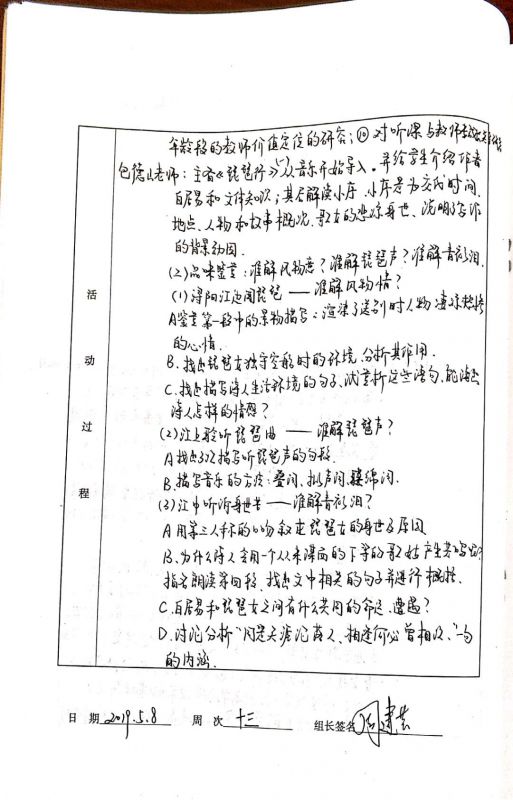 年龄段的教师价值定位的研究；⑩对听课与教师
包德儿老师：主备《琵琶行》(1)从音乐开始导入，并给学生介绍作者
白居易和文体知识；其后解读小序，小序是为交代时间、
地点、人物和故事概况，歌女的悲凉身世，说明了写作
的背景动因。
(2)品味鉴赏：谁解风物意？谁解琵琶声？谁解青衫泪。
(1)浔阳江边闻琵琶——谁解风物情？
A鉴赏第一段中的景物描写：渲染了送别时人物凄凉愁惨
的心情。
B.找出琵琶女独守空船时的环境，分析其作用。
C.找出描写诗人生活环境的句子，试赏析这些语句，能读出
诗人怎样的情感？
(2)江上聆听琵琶曲——谁解琵琶声？
A找出3次描写听琵琶声的句段
B.描写音乐的方法：叠词、拟声词、联绵词。
(3)江中听诉身世苦——谁解青衫泪？
A用第三人称的口吻叙述琵琶女的身世及原因
B.为什么诗人会用一个从未谋面的下等的歌女产生共鸣
指名朗读第四段，找出文中相关的句子并进行概括。
C.白居易和琵琶女之间有什么共同的命运、遭遇？
D.讨论分析“同是天涯沦落人，相逢何必曾相识。”一句
的内涵。
活
动
过
程
日 期 2019.5.8 周 次 十三 组长签名